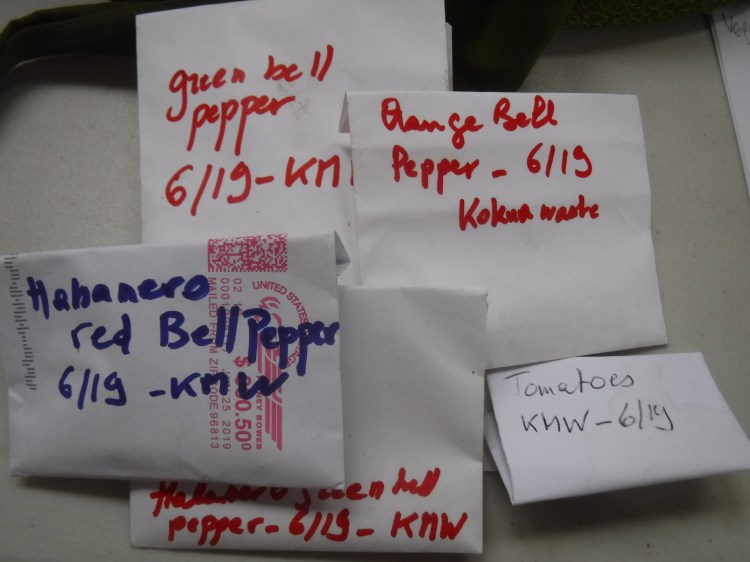 green bell
pepper
6/19-KM
Orange Bell
Pepper - 6/19
Kokua waste
Habanero
red Bell Pepper
6/19 -KMW
UNITED STATES
02 1
0001
MAILED FROM ZIP CODE 96813
25 2019
$ 000.500
NEY BOWES
Tomatoes
KMW-6/19
Habanero green bell
pepper-6/19-KMW